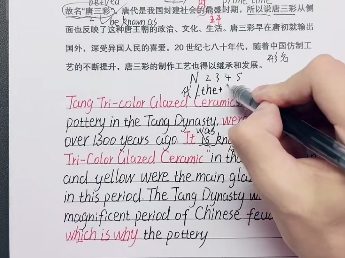 prime time
故名"唐三彩"。唐代是我国封建社会的鼎盛时期,所以说唐三彩从侧
be known as
面也反映了这种唐王朝的政治、文化、生活。唐三彩早在唐初就输出
国外,深受异国人民的喜爱。20世纪七八十年代,随着中国仿制工
艺的不断提升,唐三彩的制作工艺得以继承和发展。
N 2 3 4 5
/ the +
Tang Tri-color Glazed Ceramic
pottery in the Tang Dynasty, were
over 1300 years ago. It is
was
Tri-Color Glazed Ceramic" in th
and yellow were the main gla
in this period. The Tang Dynasty w
magnificent period of Chinese feu
which is why the pottery